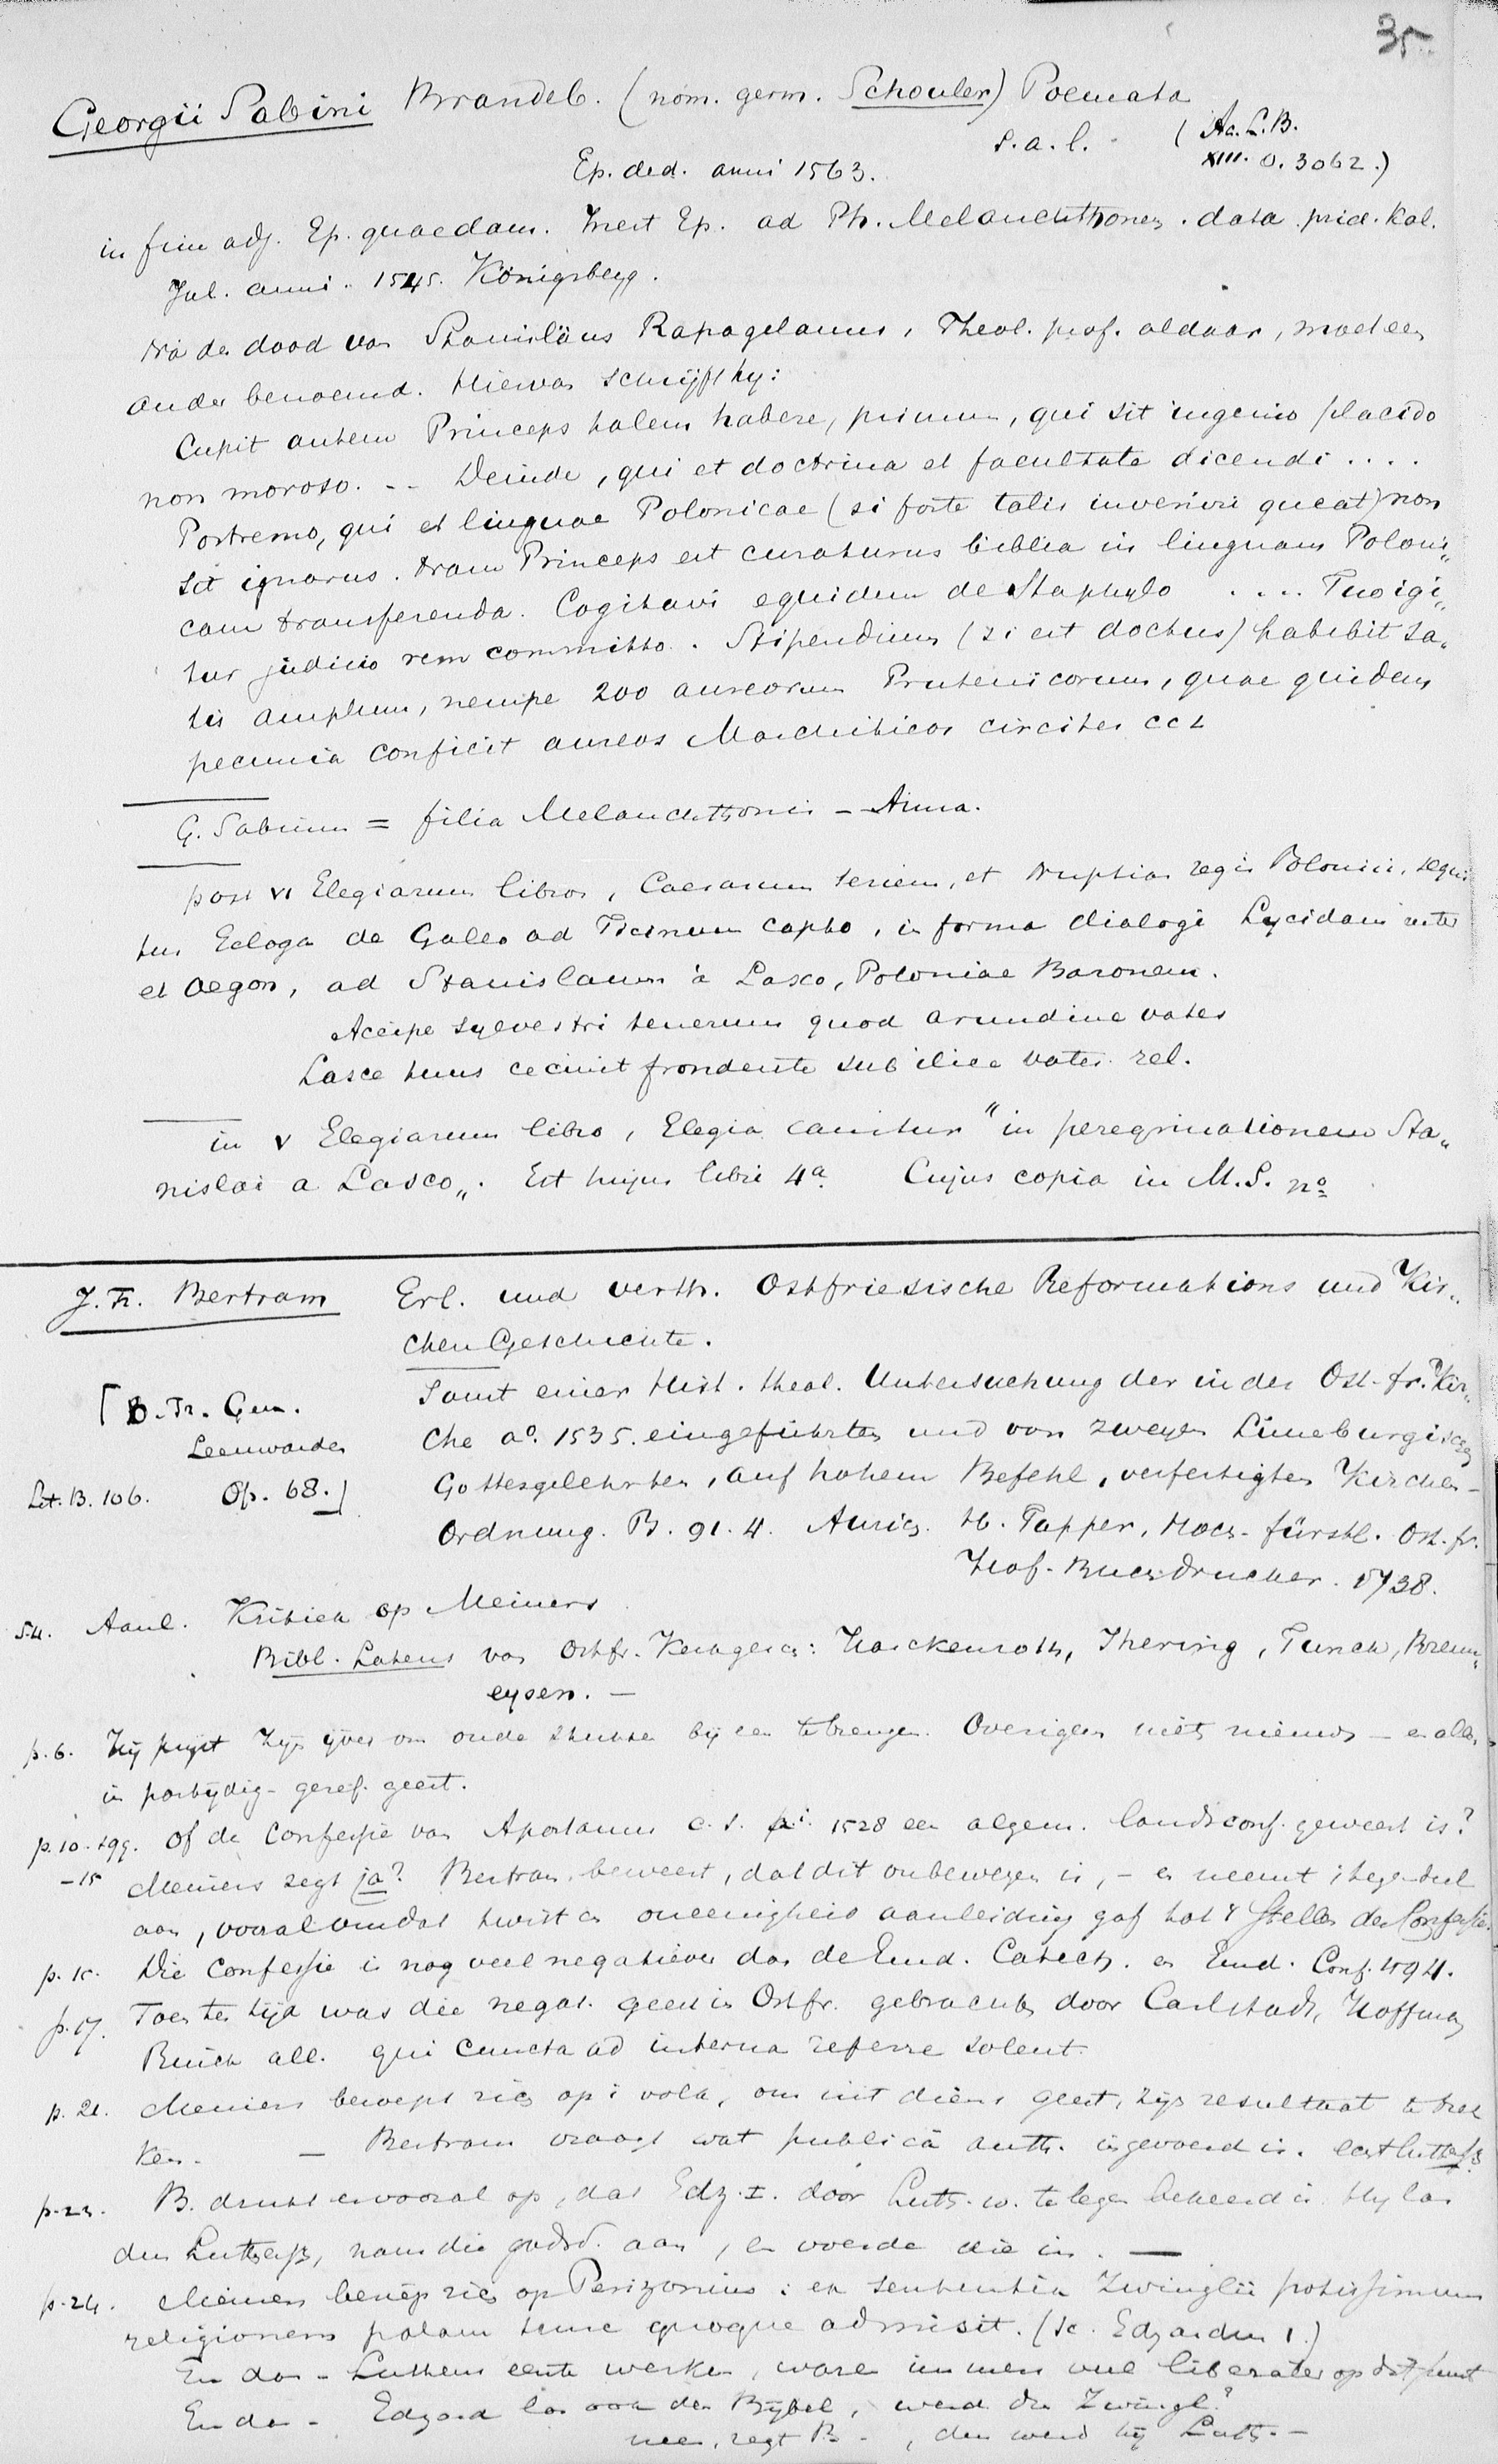 35
Georgii Sabini Brandeb. (nom. germ. Schouler) Poemata
s. a. l. (Ac. L. B.
Ep. ded. anni 1563. XIII. O. 3062.)
in fine adj. Ep. quaedam. Inest Ep. ad Ph. Melanchthonem. data prid. Kal.
Jul. anni 1545. Königsberg.
Na de dood van Stanislaus Rapagelanus, Theol. prof. aldaar, moet een
ander benoemd. Hiervan schrijft hy:
Cupit autem Princeps talem habere, primum, qui sit ingenio placido
non moroso. -- Deinde, qui et doctrina et facultate dicendi ....
Postremo, qui et linguae Polonicae (si forte talis inveniri queat) non
sit ignarus. Nam Princeps est curaturus biblia in linguam Poloni„
cam transferenda. Cogitavi equidem de Staphylo .... Tuo igi„
tur judicio rem committo. Stipendium (si est doctus) habebit sa„
tis amplum, nempe 200 aureorum Prutenicorum, quae quidem
pecunia conficit aureos Marchiticos circiter CCL
G. Sabinus = filia Melanchthonis – Anna.
post VI Elegiarum libros, Caesarum seriem, et Nuptias regis Polonici, sequi
tur Ecloga de Gallo ad Ticinum capto, in forma dialogi Lycidam inter
et Aegon, ad Stanislaum à Lasco, Poloniae Baronem.
Accipe sylvestri tenerum quod arundine vates
Lasce tuus cecinit frondente sub ilice vates rel.
in V Elegiarum libro, Elegia canitur "in peregrinationem Sta„
nislai a Lasco„. Est hujus libri 4a. Cujus copia in M.S. no
J. F. Bertram Erl. und verth. Ostfriesische Reformations und Kir„
chen Geschichte.
Samt einer Hist. theol. Untersuchung der in der Ost-fr. Kir„
[B. Fr. Gen. che ao. 1535. eingeführten und von zweyen Lüneburgischen
Leeuwarden Gottesgelehrten, auf hohem Befehl, verfertigten Kirchen-
Lit. B. 106. Op. 68.] Ordnung. B. 91. 4. Aurich. H. Tapper, Hoch-fürstl. Ost. fr.
Hof-Buchdrucker. 1738.
S.4. Aanl. Kritiek op Meiners
Bibl. Latens van Ostfr. Kerkgesch: Harckenroth, Ihering, Funck, Brenn„
eysen. –
p. 6. Hij prijst zijn ijver om oude stukken bij een te brengen. Overigens niets nieuws – en alles
in partijdig-geref. geest.
p. 10. sqq. Of de Confessie van Aportanus c. s. 1528 een algem. landsconf. geweest is?
–15 Meiners zegt ja? Bertram beweert, dat dit onbewezen is, – en neemt 't tegendeel
aan, vooral omdat twist en oneenigheid aanleiding gaf tot 't stellen der Confessie.
p. 15. Die Confessie is nog veel negatiever dan de Emd. Catech. en Emd. Conf. 1594.
p. 17. Toen ter tijd was die negat. geest in Ostfr. gebracht door Carlstadt, Hoffman
all. qui cuncta ad interna referre solent.
p. 21. Meiners beroept zich op 't volk, om uit diens geest, zijn resultaat te trek
ken. – Bertram vraagt wat publicâ auth. ingevoerd is.
p. 23. B. drukt er vooral op, dat Edz. I. door Luth. w. te lezen bekeerd is. Hy las
den Luthersch, nam die godsd. aan, en voerde die in. —
p. 24. Meiners beriep zich op Perizonius: ex sententia Zwinglii potissimum
religionem palam hunc quoque admisit. (sc. Edzardus 1.)
En dan – Luthers eerste werken, waren immers veel liberaler op dat punt
En dan – Edzard las ook den Bijbel, werd die Zwingl?
nee, zegt B. –, dan werd hij Luth. –